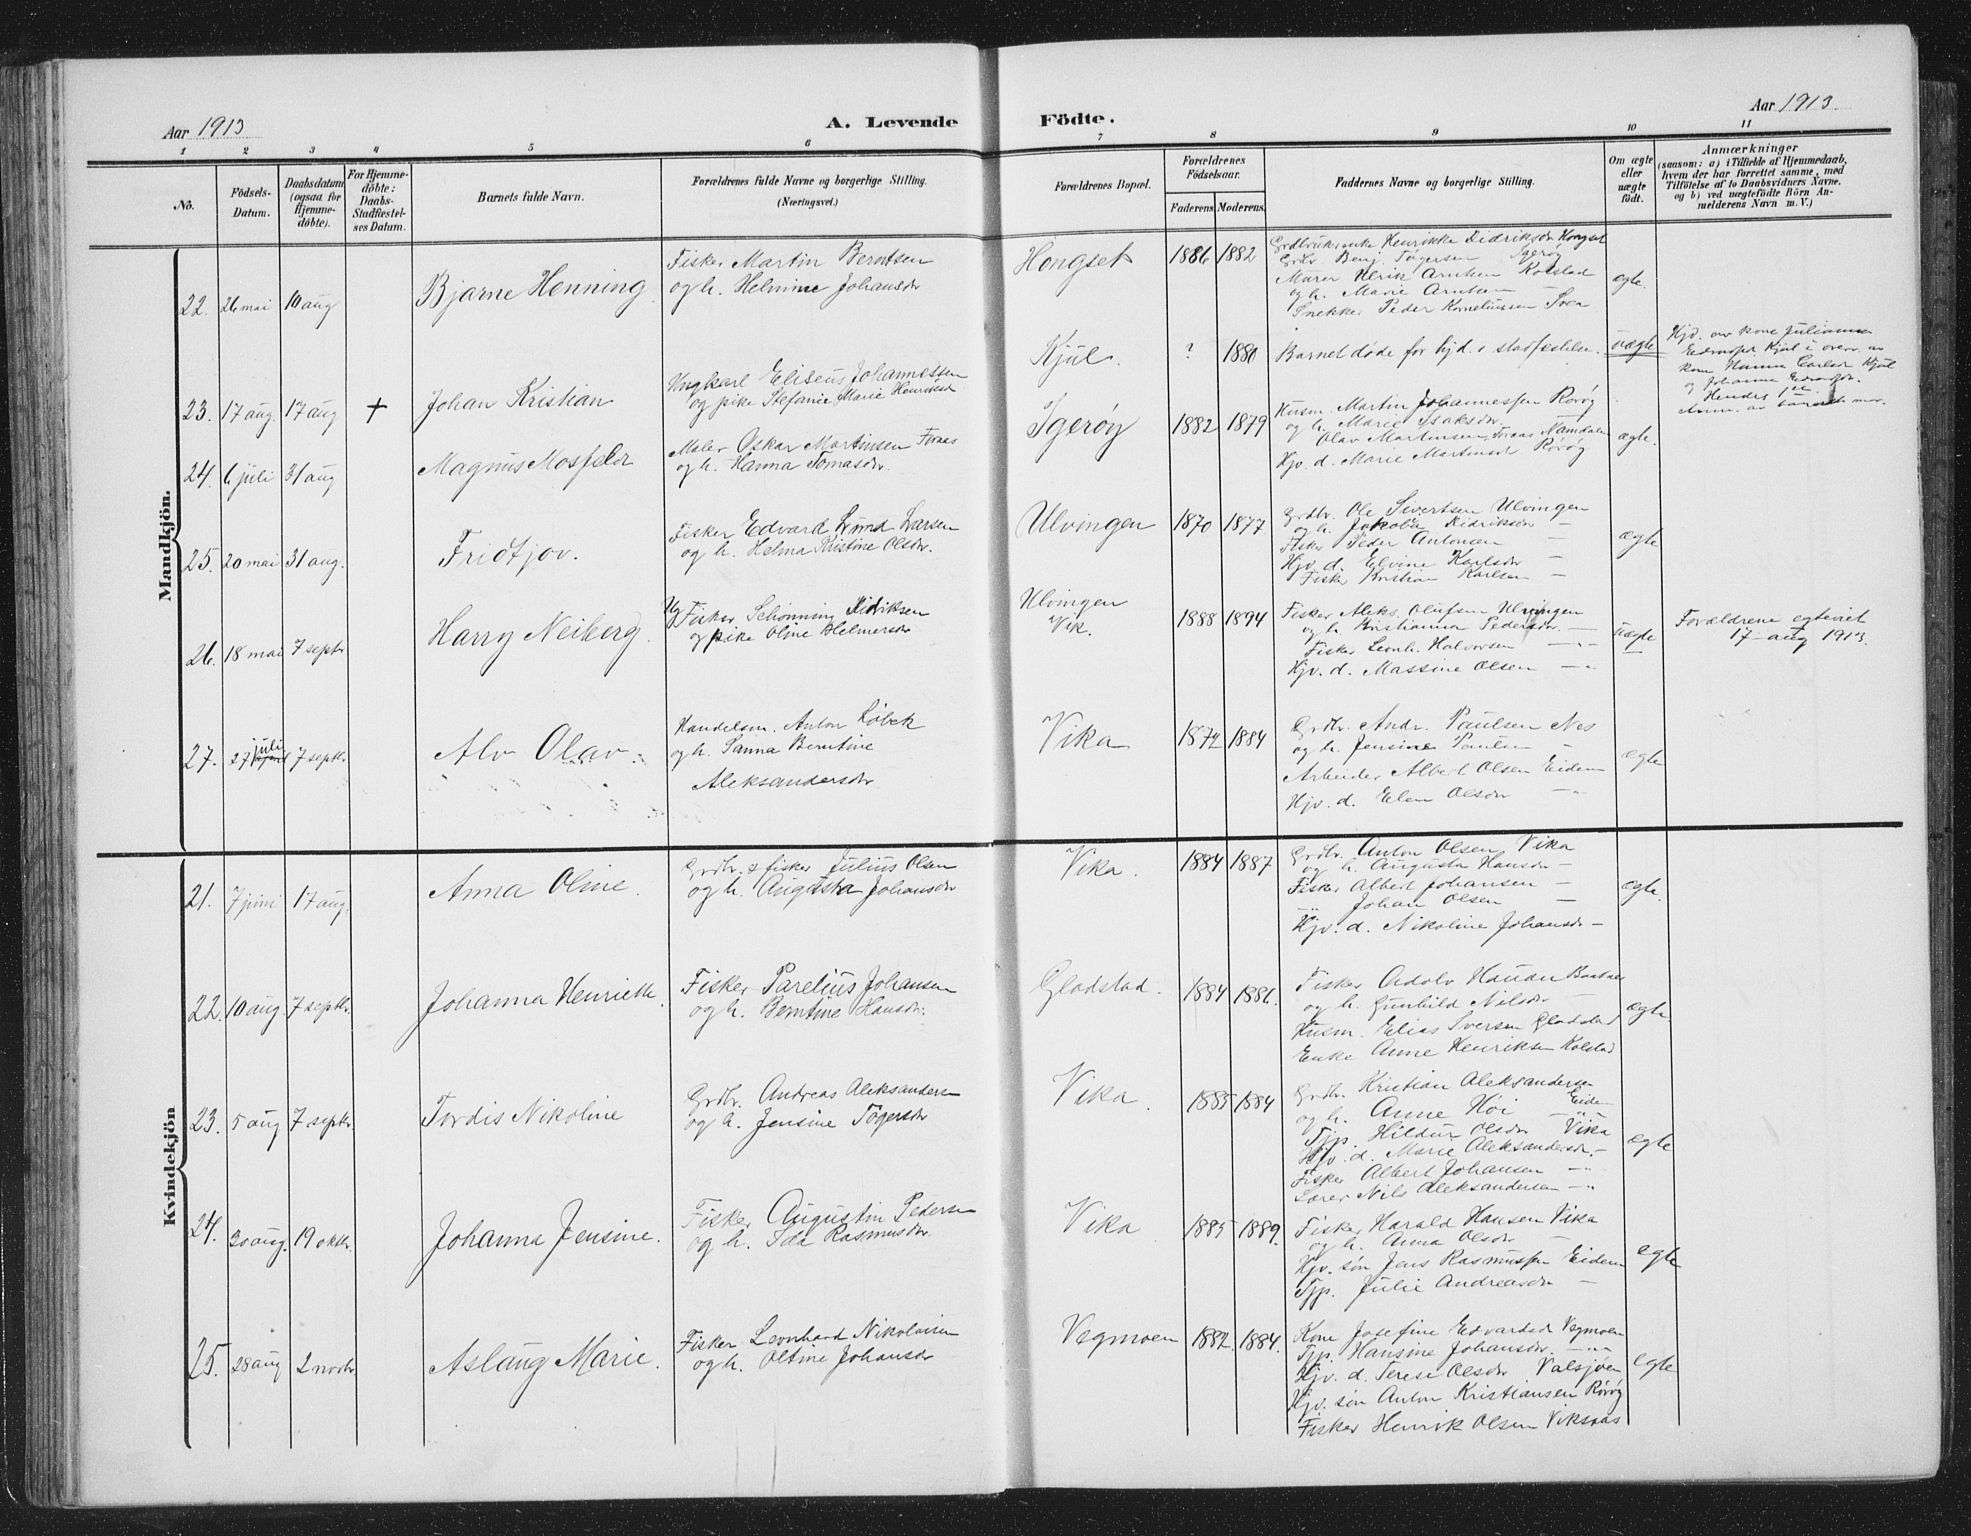 Aar 1913
A. Levende
Födte.
Aar 1913.
1 2 3 4 5 6 7 8 9 10 11
No.
Födsels-
Datum.
Daabsdatum
(ogsaa for
Hjemme-
døbte).
For Hjemme-
døbte:
Daabs-
Stadfæstel-
ses Datum.
Barnets fulde Navn.
Forældrenes fulde Navne og borgerlige Stilling.
(Næringsvei.)
Forældrenes Bopæl.
Forældrenes
Fødselsaar.
Faderens. Moderens.
Faddernes Navne og borgerlige Stilling.
Om ægte
eller
uægte
født.
Anmærkninger
(saasom: a) i Tilfælde af Hjemmedaab,
hvem der har forrettet samme, med
Tilföielse af to Daabsvidners Navne.
og b) ved uægtefödte Börn An-
melderens Navn m. V.)
Mandkjön.
22. 26 mai 10 aug
Bjarne Henning
Fisker Martin Berntsen
og h. Helmine Johansdr
Hongset
1886 1882
Henrikke Didriksdr Hongset
Grdbr Benj. Tøgersen Igerøy
Murer Ulrik Arntzen Kolstad
og h. Marie Arntzen
Snekker Peder Korneliussen
ægte.
23. 17 aug. 17 aug +
Johan Kristian
Ungkarl Eliseus Johannessen
og pike Stefanie Marie
Kjul.
? 1880
Barnet døde før hjd.s stadfestelse.
uægte
Hjd. av kone Julianna
Kjul i overv. av
kone Hanna Kjul
og Johanna
Hendes 1ste
24. 6 juli 31 aug
Magnus Mosfeldt
Maler Oskar Martinsen Foraas
og h. Hanna Tomasdr.
Igerøy
1882 1879
Husm. Martin Johannessen Rørøy
og h. Marie Isaksdr.
Olav Martinsen Foraas Namdalen
Hjv. d. Marie Martinsdr Rørøy
ægte.
25. 20 mai 31 aug.
Fridtjov.
Fisker Edvard Lund Larsen
og h. Helma Kristine Olsdr.
Ulvingen
1870 1877
Grdbr. Ole Sivertsen Ulvingen
og h. Jakobia Didriksdr —
Fisker Peder Antonsen —
Hjv. d. Elvine Karlsdr —
Fisker Kristian Karlsen —
ægte
26. 18 mai 7 septr
Harry Neiberg.
Ug Fisker Schönning Didriksen
og pike Oline Helmersdr
Ulvingen
Vik.
1888 1894
Fisker Aleks. Olufsen Ulvingen
og h. Kristianna Pedersdr. —
Fisker Leonh. Halvorsen — "
Hjv. d. Massine Olsen — "
uægte
Forældrene egteviet
17 aug 1913.
27. 27 juli 7 septr
Alv Olav.
Handelsm. Anton Løbek
og h. Sanna Berntine
Aleksandersdr
Vika
1872 1884
Grdbr. Andr. Paulsen Nes
og h. Jensine Paulsen
Arbeider Albert Olsen Eidem
Hjv. d. Elen Olsdr — "
ægte
Kvindekjön
21. 7 juni 17 aug.
Anna Oline.
Grdbr. & fisker Julius Olsen
og h. Augusta Johansdr
Vika.
1884 1887
Grdbr. Anton Olsen Vika
og h. Augusta Hansdr —
Fisker Albert Johansen —
" Johan Olsen —
Hjv. d. Nikoline Johansdr —
ægte.
22. 10 aug. 7 septr.
Johanna Henriette.
Fisker Parelius Johansen
og h. Berntine Hansdr.
Gladstad.
1884 1886.
Fisker Adolv Hauan
og h. Gunhild Nilsdr —
Husm. Elias Iversen Gladstad
Enke Anne Henriksen Kolstad
ægte.
23. 5 aug 7 septr.
Tordis Nikoline
Grdbr. Andreas Aleksandersen
og h. Jensine Tøgersdr
Vika.
1885 1884
Grdbr. Kristian Aleksandersen
Eidem
og h. Anne Høi — "
Tjp. Hildur Olsdr Vika
Hjv. d. Marie Aleksandersdr. —
Fisker Albert Johansen — "
Lærer Nils Aleksandersen — "
ægte
24. 30 aug. 19 oktr.
Johanna Jensine.
Fisker Augustin Pedersen
og h. Ida Rasmusdr
Vika
1885 1889.
Fisker Harald Hansen Vika
og h. Anna Olsdr —
Hjv. søn Jens Rasmussen Eidem
Tjp. Julie Andreasdr —
egte
25. 28 aug 2 novbr.
Aslaug Marie.
Fisker Leonhard Nikolaisen
og h. Oltine Johansdr
Vegmoen
1882. 1884.
Kone Josefine Edvardsd Vegmoen
Tjp. Hansine Johansdr. — " "
Hjv. d. Terese Olsdr Valsjøen
Hjv. søn Anton Kristiansen Rørøy
Fisker Henrik Olsen Viksaas
egte